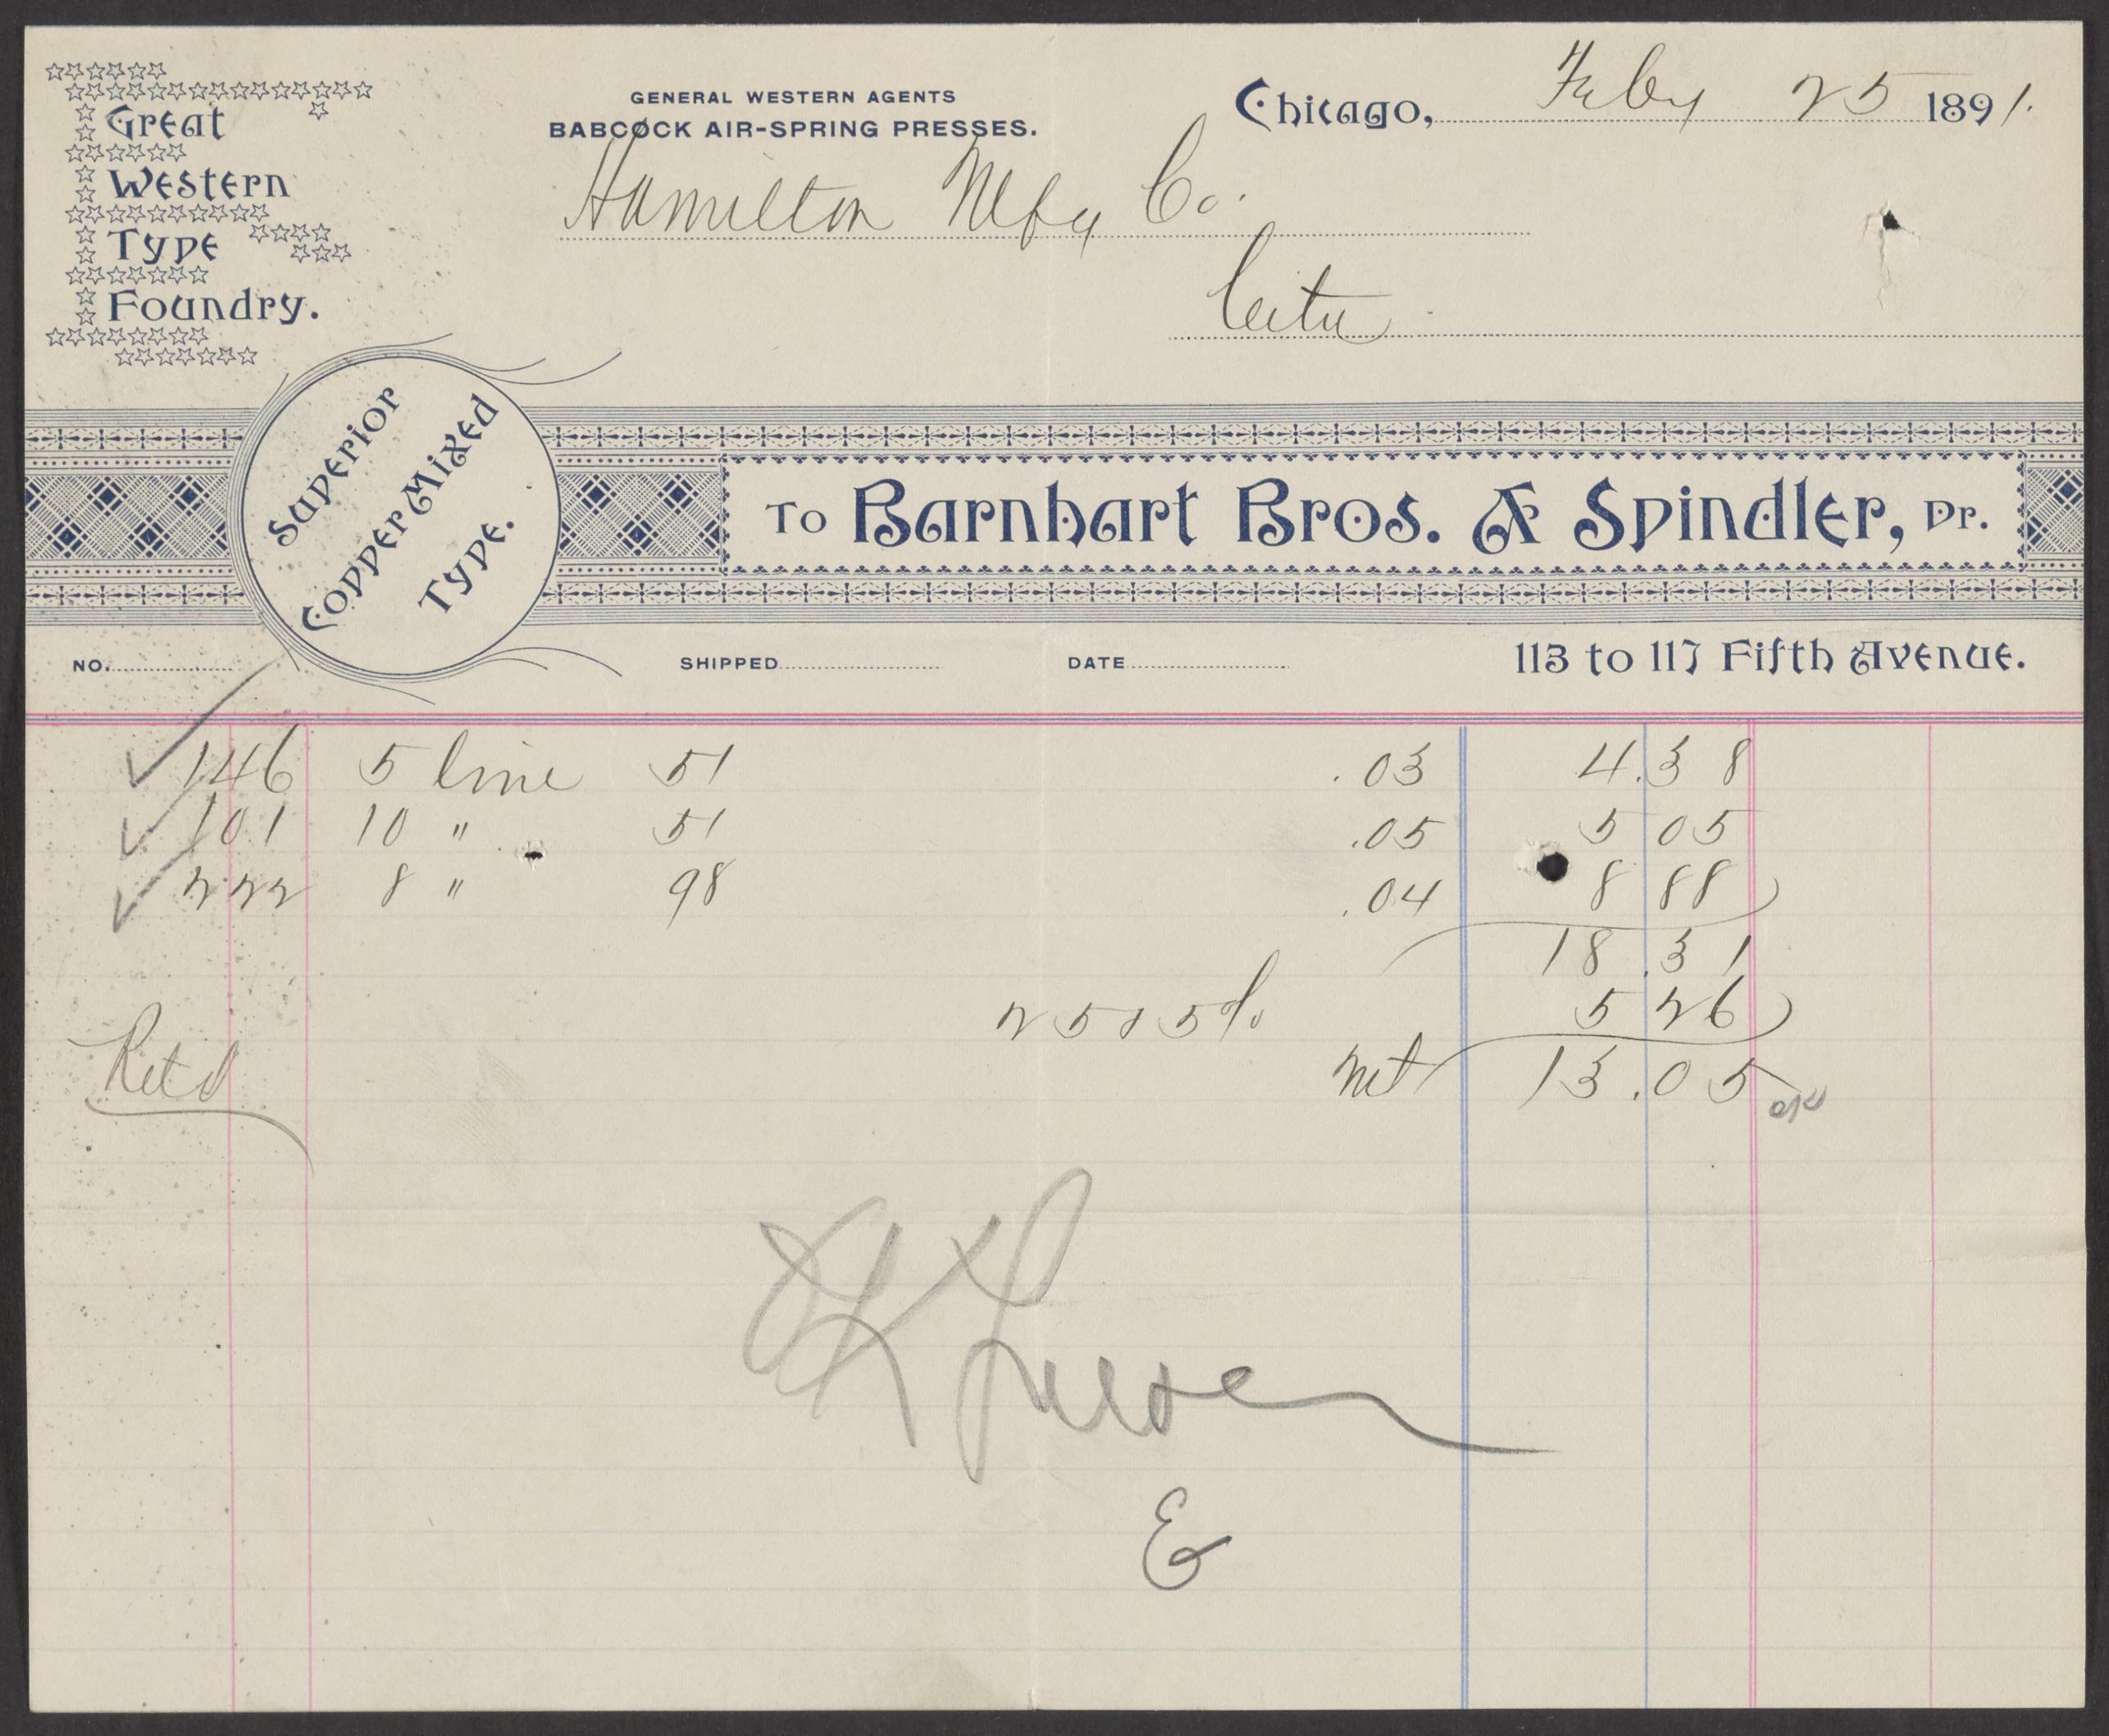 Great
Western
Type
Foundry.
GENERAL WESTERN AGENTS
BABCOCK AIR-SPRING PRESSES.
Chicago, Feby 25 1891.
Hamilton Mfg Co.
City
Superior
Copper Mixed
Type.
To Barnhart Bros. & Spindler, Dr.
NO. SHIPPED DATE 113 to 117 Fifth Avenue.
146 5 line 51 .03 4.38
101 10 " 51 .05 5 05
222 8 " 98 .04 8 88
18.31
25 & 5% 5 26
Net 13.05 ok
Retd
OK
&